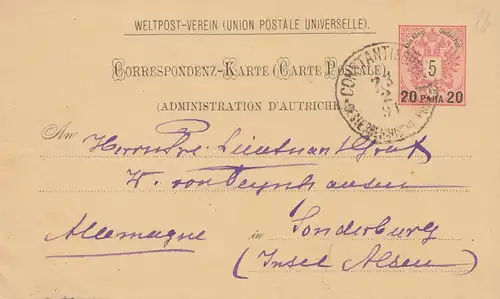 WELTPOST-VEREIN (UNION POSTALE UNIVERSELLE).
CORRESPONDENZ-KARTE (CARTE POSTALE)
(ADMINISTRATION D'AUTRICHE
5
20 PARA 20
CONSTANTINOPEL
An Herrn Pre. Lieutnant Graf
W. von
Allemagne in Sonderburg
(Insel Alsen)